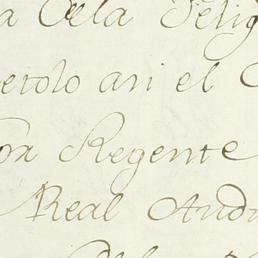 a de la Felig
etolo asi el
or Regente
Real Audi